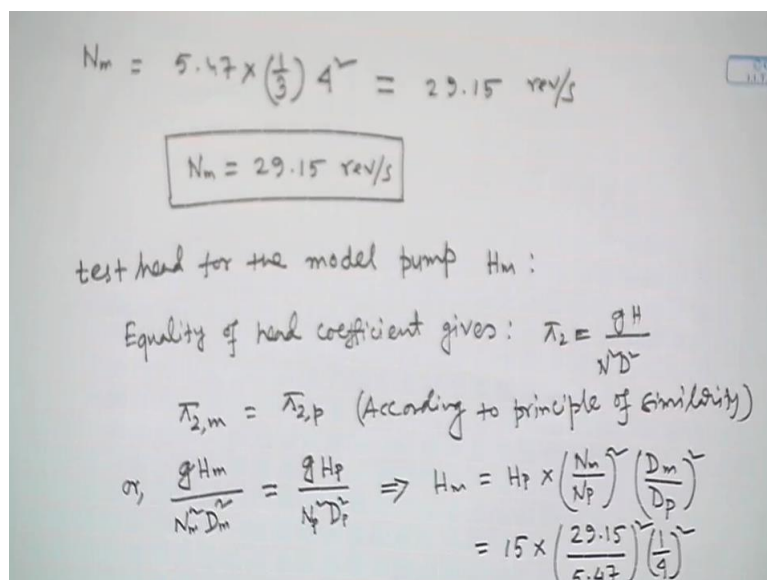 Nm = 5.47 × (1/3) 4² = 29.15 rev/s
Nm = 29.15 rev/s
test head for the model pump Hm :
Equality of head coefficient gives : π₂ = gH / N²D²
π₂,m = π₂,p (According to principle of similarity)
or, gHm / Nm²Dm² = gHp / Np²Dp² ⇒ Hm = Hp × (Nm/Np)² (Dm/Dp)²
= 15 × (29.15/5.47)² (1/4)²